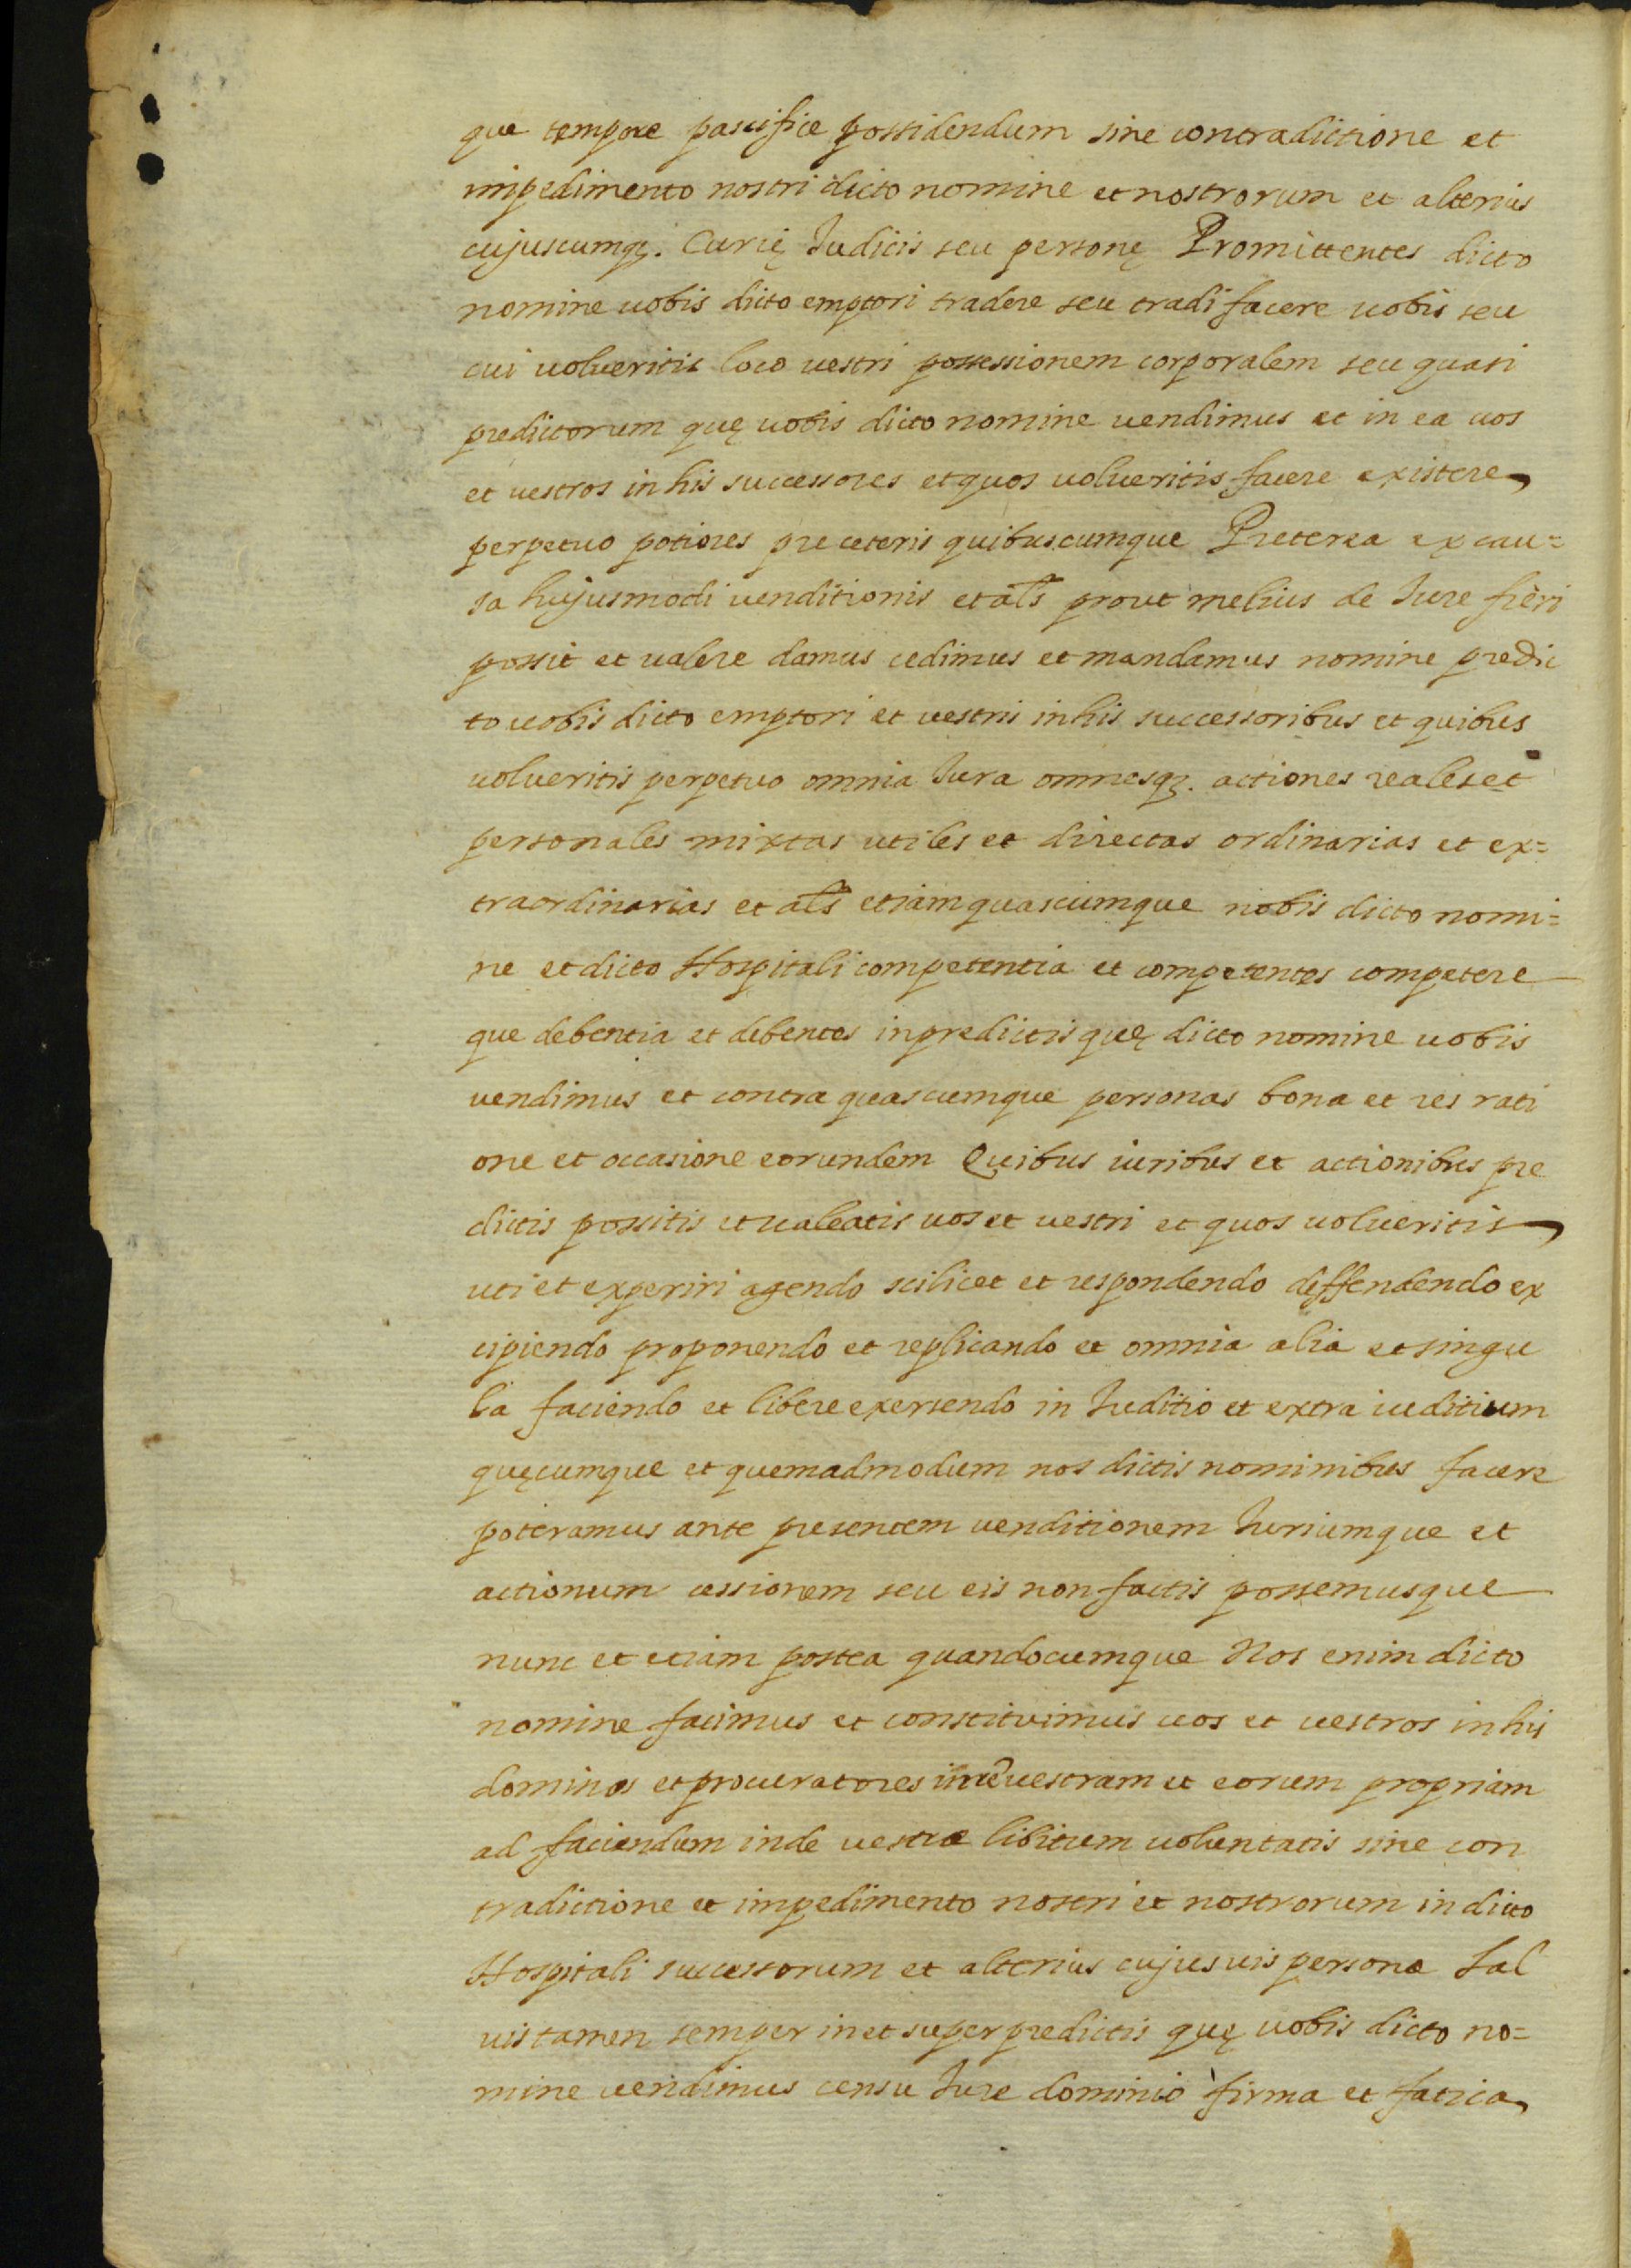 que tempore pascifice possidendum sine contradictione et
impedimento nostri dicto nomine et nostrorum et alterius
cujuscumqȝ. Curię Judicis seu personę Promittentes dicto
nomine uobis dicto emptori tradere seu tradi facere uobis seu
cui uolueritis loco uestri possessionem corporalem seu quasi
predictorum quę uobis dicto nomine uendimus et in ea uos
et uestros in his successores et quos uolueritis facere existere
perpetuo potiores pre ceteris quibuscumque Preterea ex cau=
sa hujusmodi uenditionis et als prout melius de Jure fieri
possit et ualere damus cedimus et mandamus nomine predic
to uobis dicto emptori et uestris in his successoribus et quibus
uolueritis perpetuo omnia Jura omnesqȝ. actiones reales et
personales mixtas utiles et directas ordinarias et ex=
traordinarias et als etiam quascumque nobis dicto nomi=
ne et dicto Hospitali competentia et competentes competere
que debentia et debentes in predictis quę dicto nomine uobis
uendimus et contra quascumque personas bona et res rati
one et occasione eorundem Quibus iuribus et actionibus pre
dictis possitis et ualeatis uos et uestri et quos uolueritis
uti et experiri agendo scilicet et respondendo deffendendo ex
cipiendo proponendo et replicando et omnia alia et singu
la faciendo et libere exersendo in Juditio et extra iuditium
quęcumque et quemadmodum nos dictis nominibus facere
poteramus ante presentem uenditionem Juriumque et
actionum cessionem seu eis non factis possemusque
nunc et etiam postea quandocumque Nos enim dicto
nomine facimus et constituimus uos et uestros in his
dominos et procuratores uestram et eorum propriam
ad faciendum inde uestræ libitum voluntatis sine con
tradictione et impedimento nostri et nostrorum in dicto
Hospitali successorum et alterius cujusuis personæ Sal
uis tamen semper in et super predictis quę uobis dicto no=
mine uendimus censu Jure dominio firma et fatica